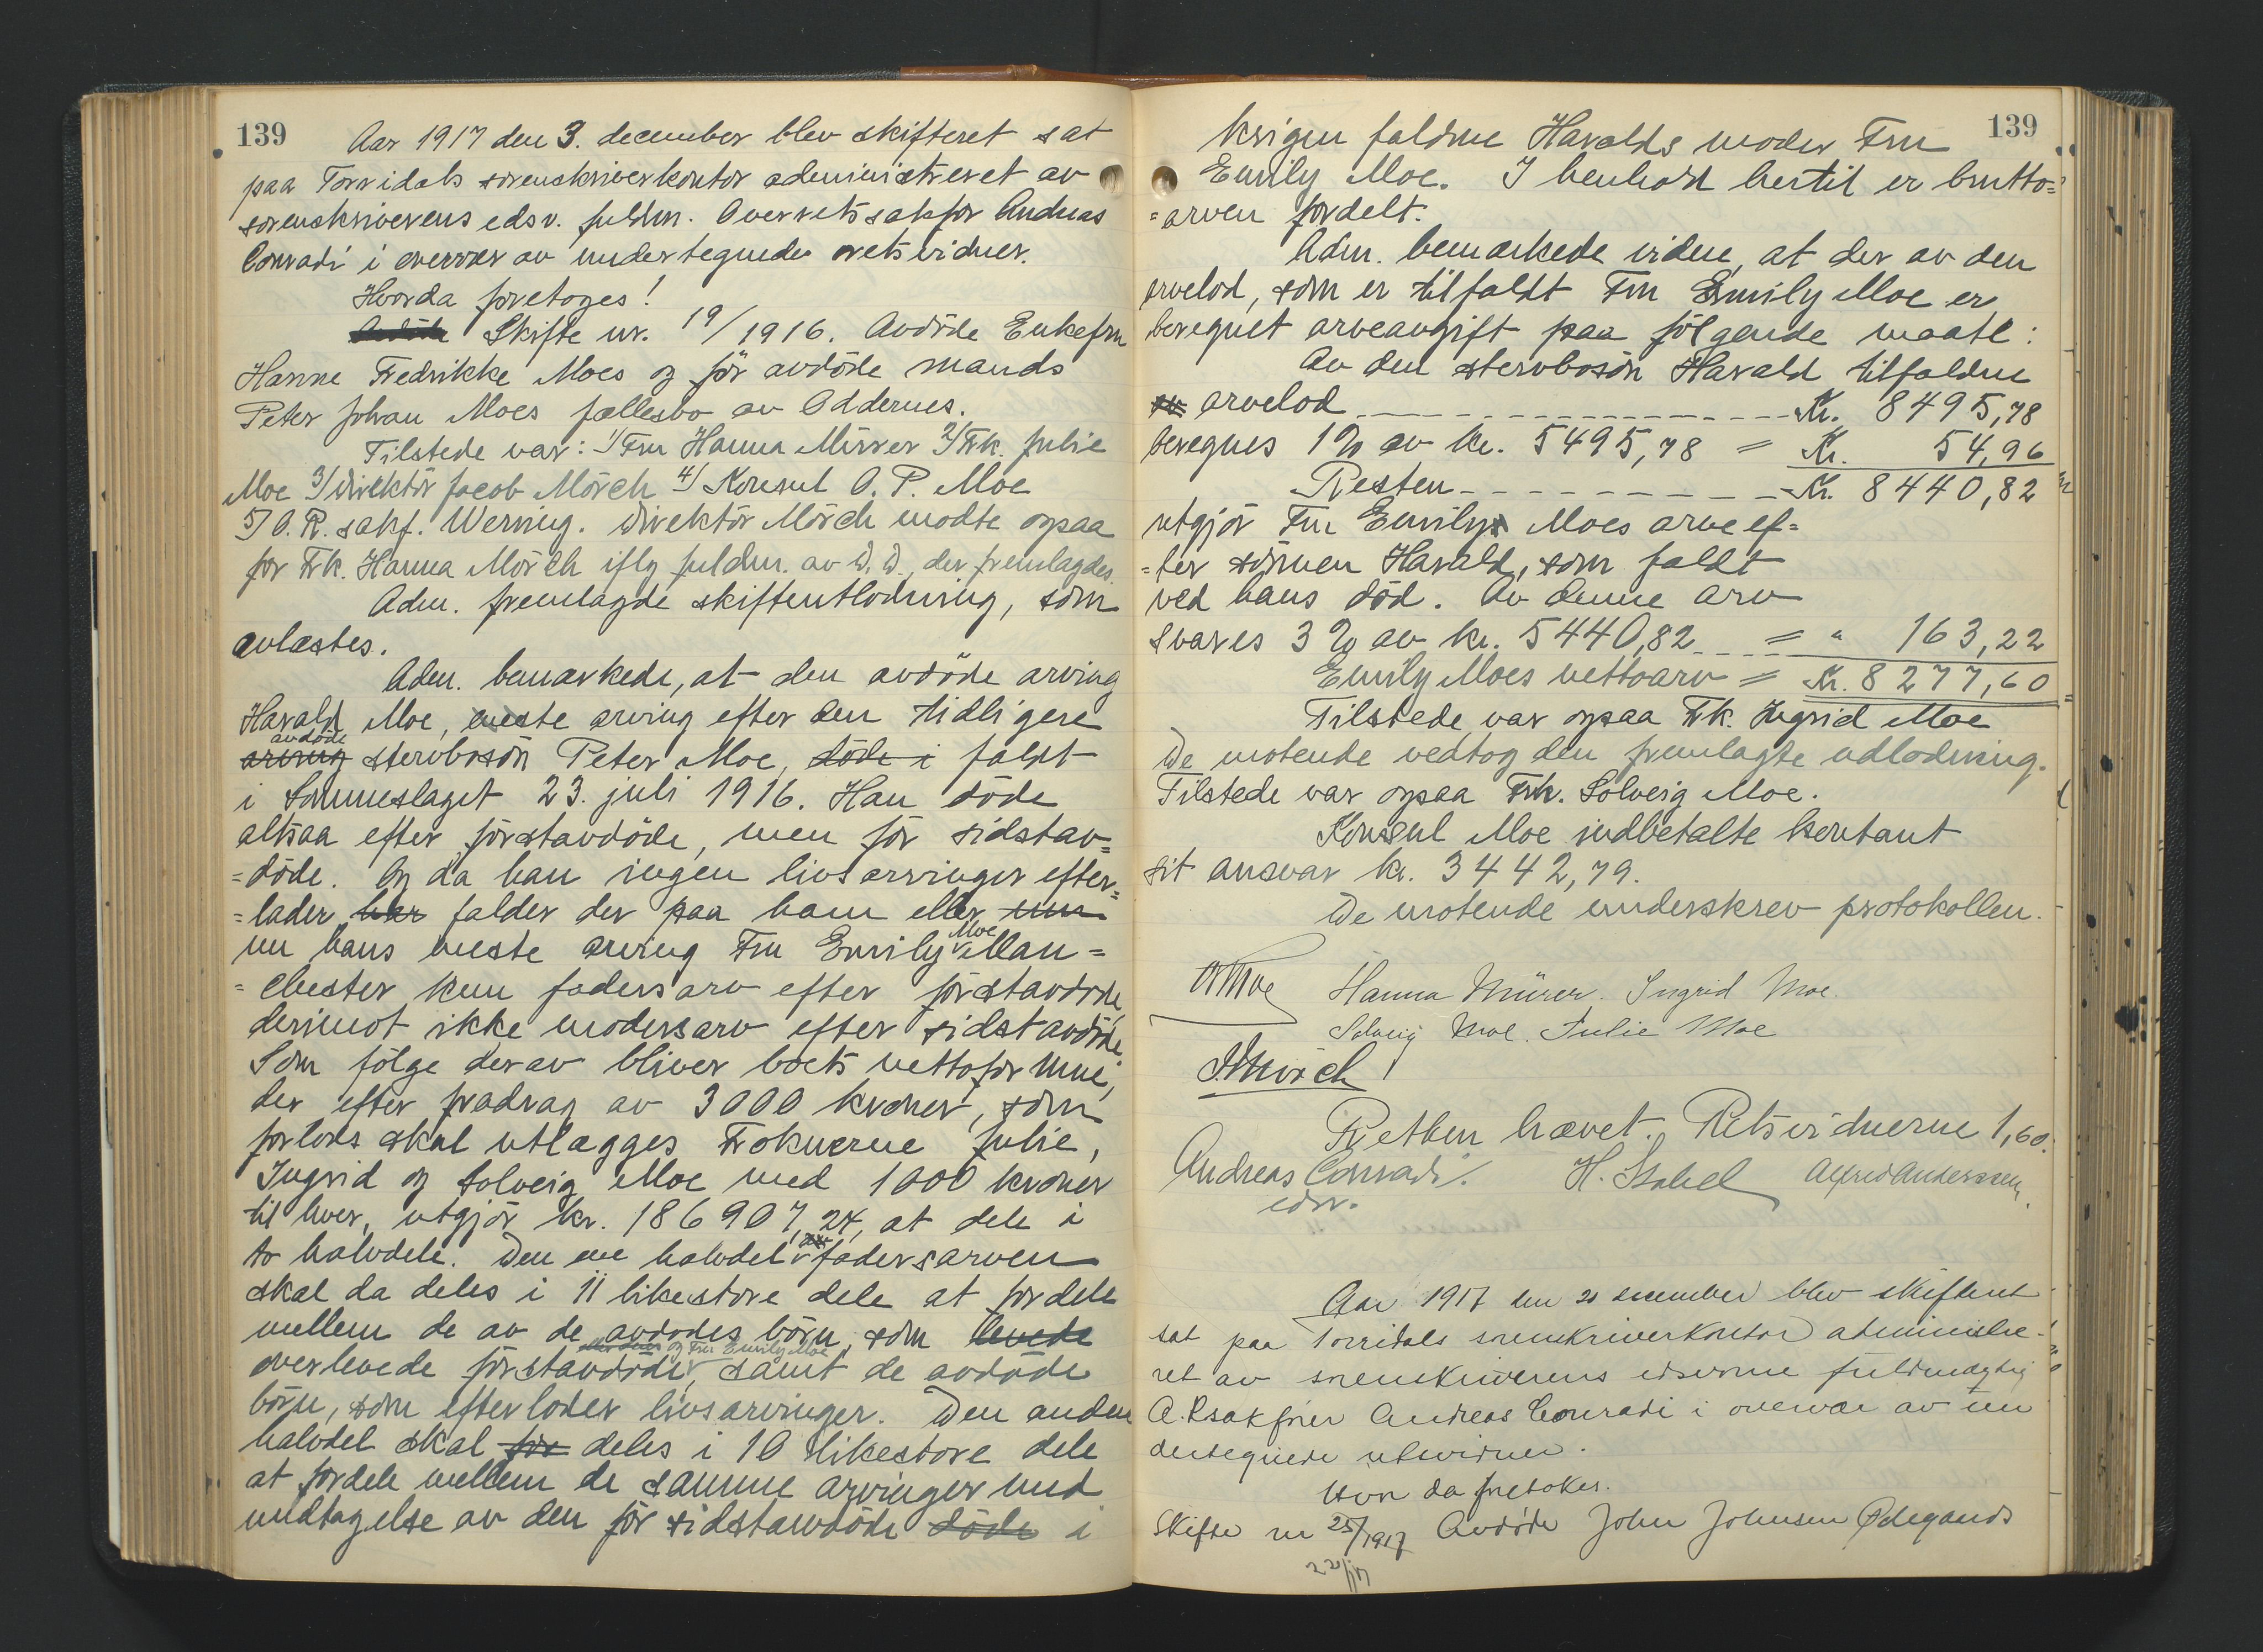 139 Aar 1917 den 3. december blev skifteret sat
paa Torridals sorenskriverkontor administreret av
sorenskriverens edsv. fuldm. Overretssakfør Andreas
Conradi i overvær av undertegnede retsvidner.
Hvorda foretoges!
Avdöde Skifte nr. 19/1916. Avdöde Enkefru
Hanne Fredrikke Moes og för avdöde mands
Peter Johan Moes fællesbo av Oddernes.
Tilstede var: 1/ Fru Hanna Mürer 2/ Frk. Julie
Moe 3/ Direktör Jacob Mörch 4/ Konsul O. P. Moe
5/ O. R. sakf. Werring. Direktör Mörch mödte ogsaa
for Frk. Hanna Mörch iflg fuldm. av D. D., der fremlagdes.
Adm. fremlagde skifteutlodning, som
avlæstes.
Adm. bemærkede, at den avdöde arving
Harald Moe, eneste arving efter den tidligere
avdöde
arving stervbosön Peter Moe, döde i faldt
i Sommeslaget 23. juli 1916. Han döde
altsaa efter förstavdöde, men för sidstav=
=döde. Og da han ingen livsarvinger efter=
=lader har falder der paa ham eller
nu hans neste arving Fru Emily Moe Man=
=chester kun fadersarv efter förstavdöde,
derimot ikke modersarv efter sidstavdöde.
Som fölge derav bliver boets nettoformue,
der efter fradrag av 3000 kroner, som
forlods skal utlægges Fröknerne Julie,
Ingrid og Solveig Moe med 1000 kroner
til hver, utgjör kr. 186907,24, at dele i
to halvdele. Den ene halvdel fadersarven
skal da deles i 11 likestore dele at fordele
mellem de av de avdödes börn, som levede
og Fru Emily Moe
overlevede förstavdöde, samt de avdöde
börn, som efterlader livsarvinger. Den anden
halvdel skal for deles i 10 likestore dele
at fordele mellem de samme arvinger med
undtagelse av den för sidstavdöde döde i
139
krigen faldne Haralds moder Fru
Emily Moe. I henhold hertil er brutto=
=arven fordelt.
Adm. bemærkede videre, at der av den
arvelod, som er tilfaldt Fru Emily Moe er
beregnet arveavgift paa fölgende maate:
Av den stervbosön Harald tilfaldne
arvelod Kr. 8495,78
beregnes 1% av kr. 5495,78 = Kr. 54,96
Resten Kr. 8440,82
utgjör Fru Emily Moes arv ef=
=ter sönnen Harald, som faldt
ved hans död. Av denne arv
svares 3% av kr. 5440,82 = " 163,22
Emily Moes nettoarv = Kr. 8277,60
Tilstede var ogsaa Frk. Ingrid Moe
De mötende vedtog den fremlagte udlodning.
Tilstede var ogsaa Frk. Solveig Moe.
Konsul Moe indbetalte kontant
sit ansvar kr. 3442,79.
De mötende underskrev protokollen.
OPMoe Hanna Mürer. Ingrid Moe.
Solveig Moe. Julie Moe
J. Mörch
Retten hævet. Retsvidnerne 1,60.
Andreas Conradi. H. Stabel Alfred Anderssen.
edsv.
Aar 1917 den 20 december blev skifteret
sat paa Torridals sorenskriverkontor administre-
ret av sorenskriverens edsvorne fuldmægtig
O. Rsakfører Andreas Conradi i overvær av un
dertegnede retsvidner.
Hvor da foretokes.
Skifte nr 25/1917 Avdöde John Johnsen Ødegaards
22/17